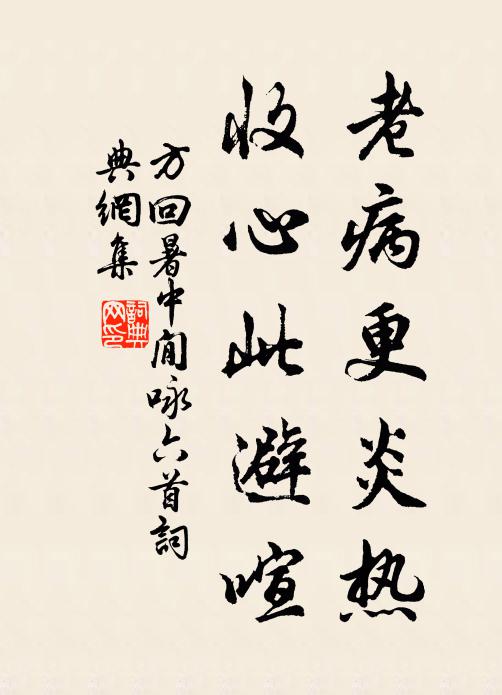 老病更炎热
收心此避喧
方回暑中閒咏六首詞
典網集
詞典
网印